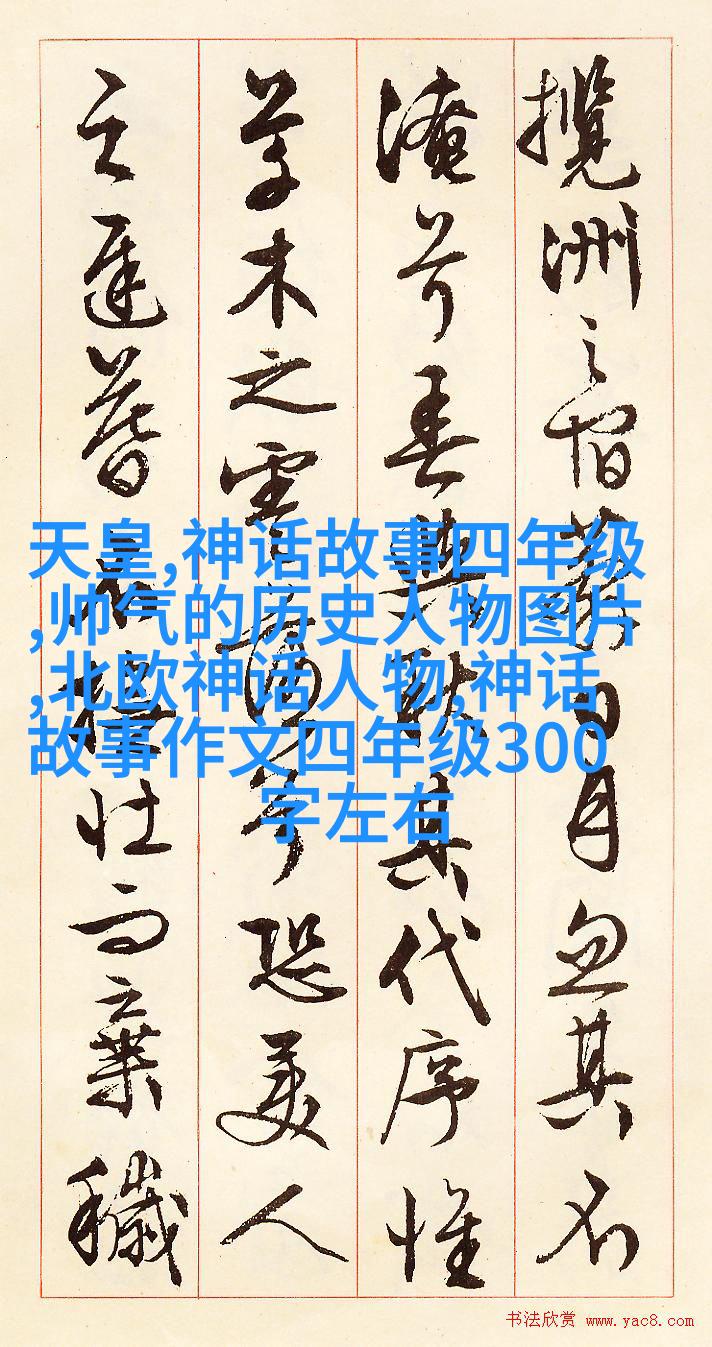 攬洲之宿莽日月忽其不
淹兮春與秋其代序惟
草木之零落兮恐美人
之遲暮撫壯而棄穢
天皇,神话故事四年级
,帅气的历史人物图片
,北欧神话人物,神话
故事作文四年级300
字左右
书法欣赏 www.yac8.com